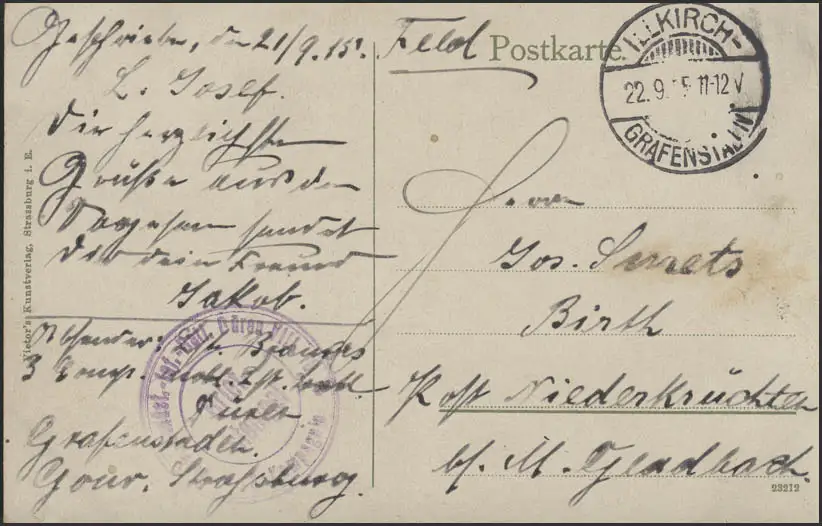 Geschrieben, den 21/9.15.
L. Josef.
Die herzlichsten
Grüße aus den
Vogesen sendet
Dir dein Freund
Jakob.
Absender:
3 Comp. mobl. Lst. Batl.
Düren
Grafenstaden.
Gouv. Straßburg.
Victor's Kunstverlag, Strassburg i. E.
Feld Postkarte.
ILLKIRCH-
22.9. 5 11-12 V
GRAFENSTADEN
Herrn
Jos.
Birth
Post Niederkrüchten
b/. M. Gladbach.
23212